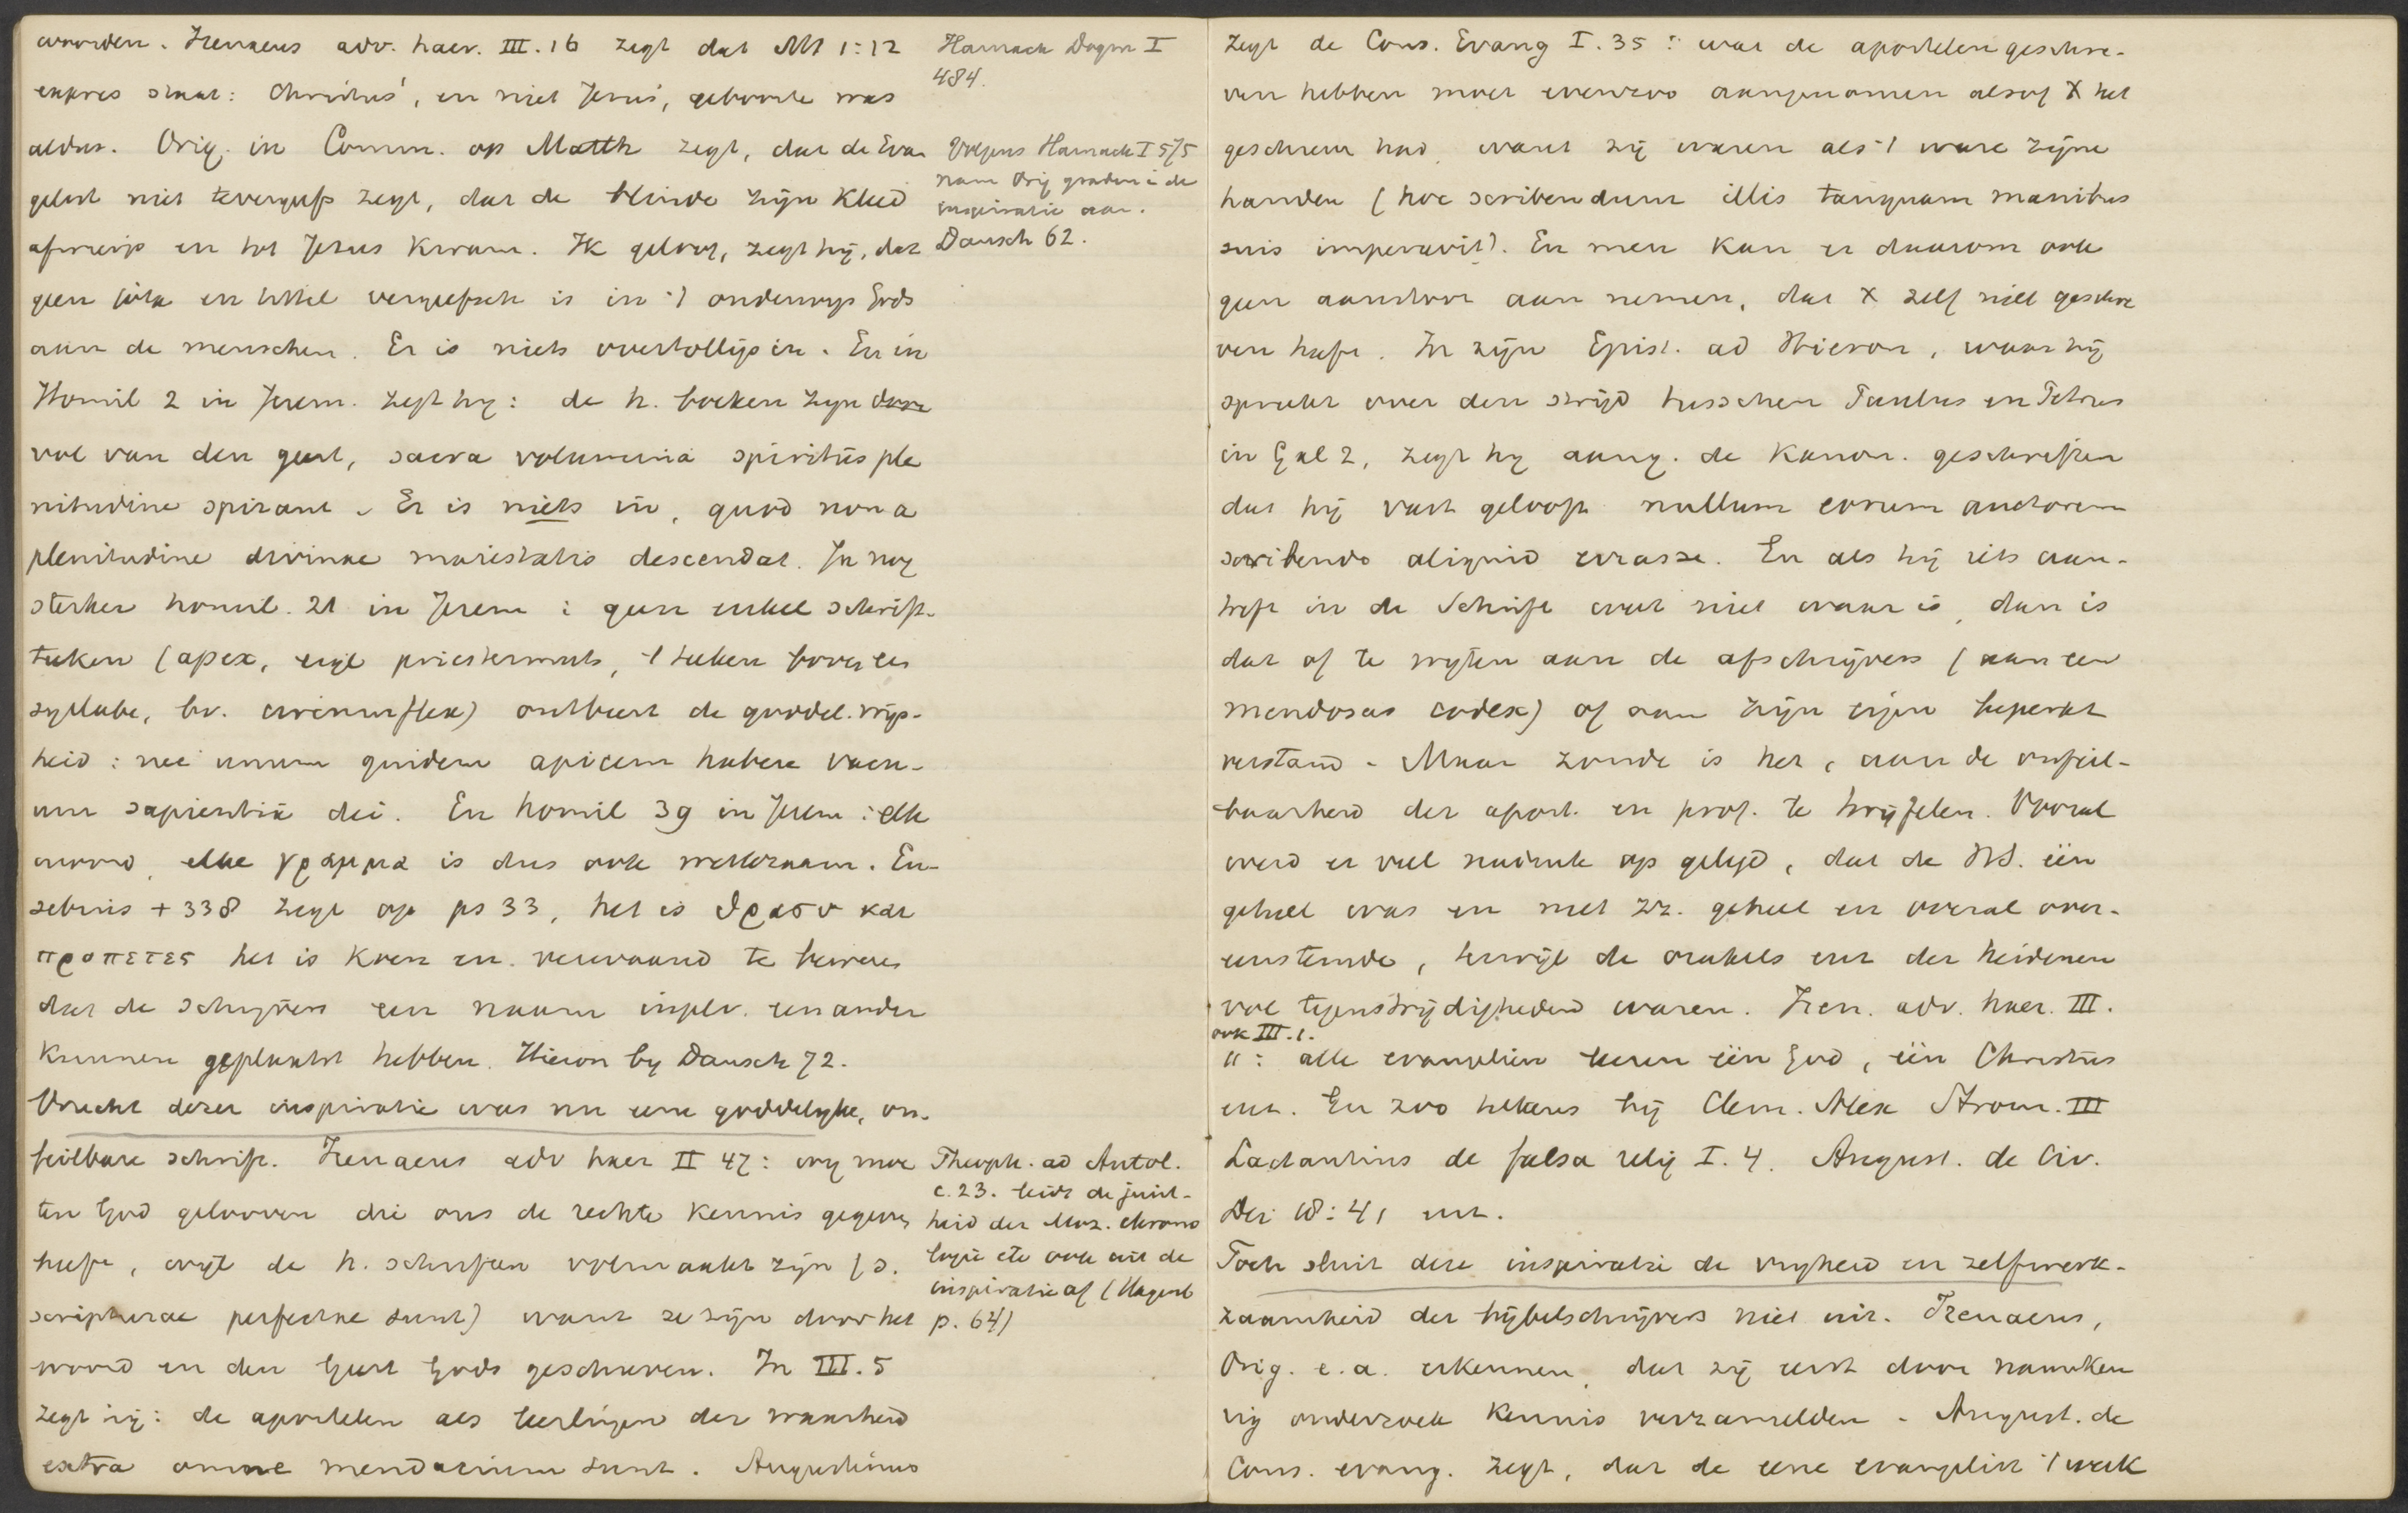 woorden. Irenaeus adv. haer. III.16 zegt dat Mt 1:12
expres staat: Christus', en niet Jezus', geboorte was
aldus. Orig. in Comm. op Matth zegt, dat de Evan
gelist niet tevergeefs zegt, dat de blinde zijn kleed
afwierp en tot Jezus kwam. Ik geloof, zegt hij, dat
geen jota en tittel vergeefsch is in 't onderwijs Gods
aan de menschen. Er is niets overtolligs in. En in
Homil 2 in Jerem. zegt hij: de h. boeken zijn door
vol van den geest, sacra volumina spiritus ple
nitudine spirant. Er is niets in, quod non a
plenitudine divinae maiestatis descendat. In nog
sterker homil. 21 in Jerem: geen enkel schrift-
teken (apex, eigl priestermuts, 't teken boven een
syllabe, bv. circumflex) ontbeert de goddel. wijs-
heid: nec unum quidem apicem habere vacu-
um sapientia dei. En homil 39 in Jerem: elk
woord, elke γραμμα is dus ook werkzaam. Eu-
sebius + 338 zegt op ps 33, het is θρασυ και
προπετες het is koen en verwaand te beweren
dat de schrijvers een naam inplv. een ander
kunnen geplaatst hebben. Hieron by Dausch 72.
Vrucht dezer inspiratie was nu eene goddelijke, on-
feilbare schrift. Irenaeus adv haer II 47: wij moe
ten God gelooven die ons de rechte kennis gegeven
heeft, wijl de h. schriften volmaakt zijn (s.
scripturae perfectae sunt) want ze zijn door het
woord en den Geest Gods geschreven. In III.5
zegt hij: de apostelen als leerlingen der waarheid
extra omne mendacium sunt. Augustinus
Harnack Dogm I
484.
Volgens Harnack I 575
nam Orig graden i de
inspiratie aan.
Dausch 62.
Theoph. ad Autol.
c. 23. leidt de juist-
heid der Moz. chrono
logie etc ook uit de
inspiratie af (Hagenb
p. 64)
zegt de Cons. Evang I.35: wat de apostelen geschre-
ven hebben moet evenzoo aangenomen alsof X het
geschreven had, want zij waren als 't ware zijne
handen (hoc scribendum illis tanquam manibus
suis imperavit). En men kan er daarom ook
geen aanstoot aan nemen, dat X zelf niet geschre
ven heeft. In zijn Epist. ad Hieron, waar hij
spreekt over den strijd tusschen Paulus en Petrus
in Gal 2, zegt hij aang. de Kanon. geschriften
dat hij vast gelooft nullum eorum auctorem
scribendo aliquid errasse. En als hij iets aan-
treft in de Schrift wat niet waar is, dan is
dat of te wijten aan de afschrijvers (aan een
mendosus codex) of aan zijn eigen beperkt
verstand. Maar zonde is het, aan de onfeil-
baarheid der apost. en prof. te twijfelen. Vooral
werd er veel nadruk op gelegd, dat de HS. één
geheel was en met zz. geheel en overal over-
eenstemde, terwijl de orakels enz der heidenen
vol tegenstrijdigheden waren. Iren. adv. haer. III.
ook III.1.
11: alle evangeliën leeren één God, één Christus
enz. En zoo telkens bij Clem. Alex Strom. III
Lactantius de falsa relig I.4. August. de Civ.
Dei 18:41 enz.
Toch sluit deze inspiratie de vrijheid en zelfwerk-
zaamheid der bijbelschrijvers niet uit. Irenaeus,
Orig. e.a. erkennen, dat zij eerst door nauwkeu
rig onderzoek kennis verzamelden. August. de
Cons. evang. zegt, dat de eene evangelist 't werk